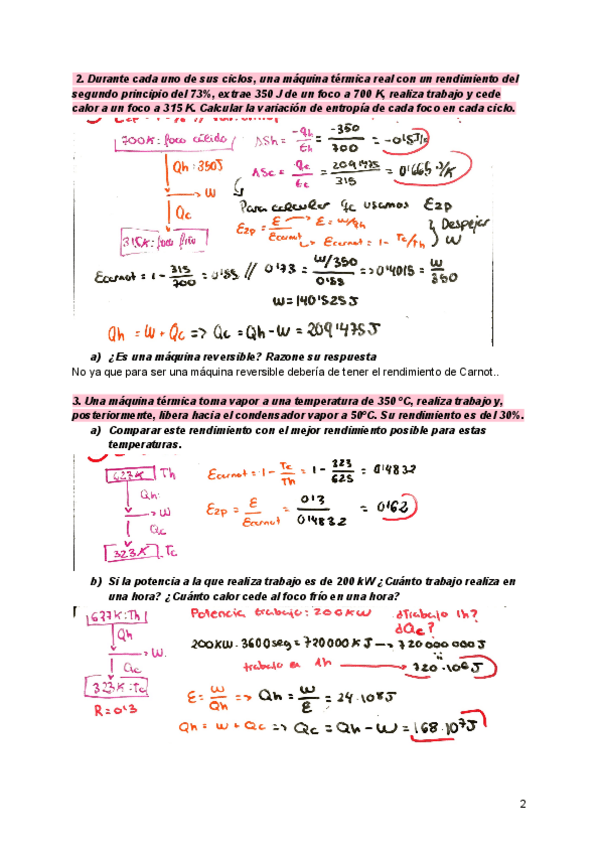 2. Durante cada uno de sus ciclos, una máquina térmica real con un rendimiento del
segundo principio del 73%, extrae 350 J de un foco a 700 K, realiza trabajo y cede
calor a un foco a 315 K. Calcular la variación de entropía de cada foco en cada ciclo.
700K: foco cálido
ΔSh = -qh/th = -350/700 = -0'5J/K
Qh: 350J
ΔSc = qc/tc = 209'475/315 = 0'665 J/K
W
Para calcular qc usamos E2p
Qc
E2p = E/Ecarnot
E = W/qh
Ecarnot = 1 - Tc/Th
Despejar W
315K: foco frío
Ecarnot = 1 - 315/700 = 0'55 // 0'73 = W/350 / 0'55 => 0'4015 = W/350
W = 140'525J
Qh = W + Qc => Qc = Qh - W = 209'475J
a) ¿Es una máquina reversible? Razone su respuesta
No ya que para ser una máquina reversible debería de tener el rendimiento de Carnot..
3. Una máquina térmica toma vapor a una temperatura de 350 °C, realiza trabajo y,
posteriormente, libera hacia el condensador vapor a 50°C. Su rendimiento es del 30%.
a) Comparar este rendimiento con el mejor rendimiento posible para estas
temperaturas.
623K Th
Ecarnot = 1 - Tc/Th = 1 - 323/623 = 0'4832
Qh
W
E2p = E/Ecarnot = 0'3/0'4832 = 0'62
Qc
323K Tc
b) Si la potencia a la que realiza trabajo es de 200 kW ¿Cuánto trabajo realiza en
una hora? ¿Cuánto calor cede al foco frío en una hora?
637K: Th
Potencia trabajo: 200KW
¿Trabajo 1h?
¿Qc?
Qh
W
200KW · 3600seg = 720000KJ → 720 000 000J
trabajo en 1h → 720·10⁶J
Qc
323K: Tc
R = 0'3
E = W/Qh => Qh = W/E = 24·10⁸J
Qh = W + Qc => Qc = Qh - W = 168·10⁷J
2